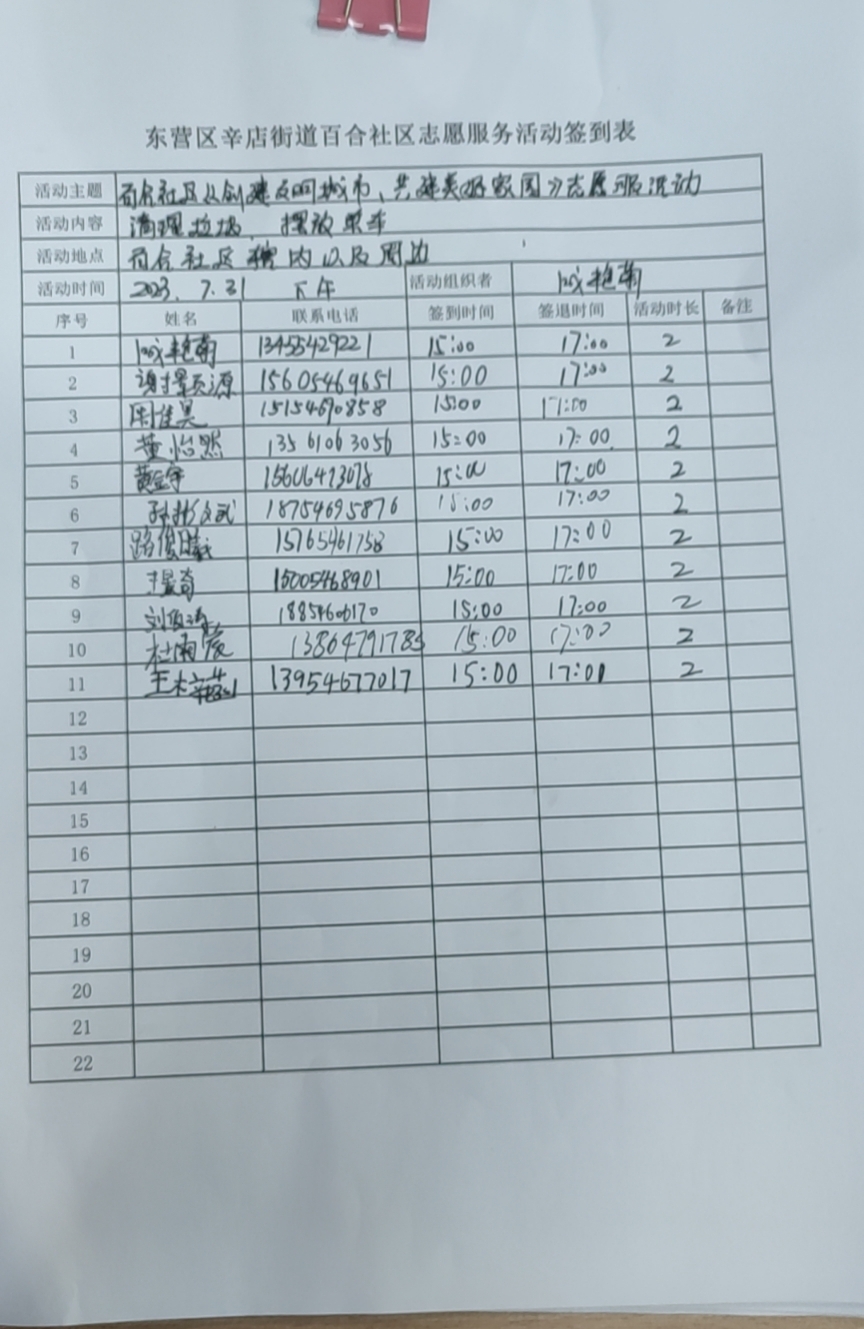 东营区辛店街道百合社区志愿服务活动签到表
活动主题 百合社区《创建文明城市、共建美好家园》志愿服活动
活动内容 清理垃圾、摆放单车
活动地点 百合社区 内以及周边
活动时间 2023.7.31 下午 活动组织者 艳南
序号 姓名 联系电话 签到时间 签退时间 活动时长 备注
1 艳南 13455429221 15:00 17:00 2
2 谢 源 15605469651 15:00 17:00 2
3 周佳昊 15154690858 15:00 17:00 2
4 董怡然 13561063056 15:00 17:00 2
5 15606473078 15:00 17:00 2
6 孙彬 18754695876 15:00 17:00 2
7 路俊曦 15765461758 15:00 17:00 2
8 15005468901 15:00 17:00 2
9 刘 18854606170 15:00 17:00 2
10 杜雨宸 13864791785 15:00 17:00 2
11 王 13954677017 15:00 17:00 2
12
13
14
15
16
17
18
19
20
21
22